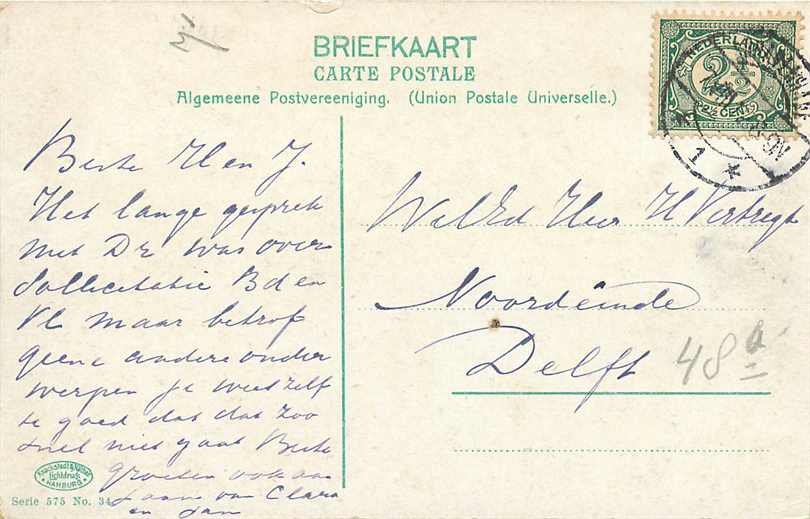 BRIEFKAART
CARTE POSTALE
Algemeene Postvereeniging. (Union Postale Universelle.)
NEDERLAND
2½
2½ CENT
Beste H en J.
Het lange gesprek
met Dr was over
Sollicitatie Bd en
Vl maar betrof
geene andere onder
werpen je weet zelf
te goed dat dat zoo
snel niet gaat Beste
groeten ook aan
Jaans van Clara
en Jan
WelEd Heer H Vertregt
Noordeinde
Delft
48a
Knackstedt & Näther
Lichtdruck
HAMBURG
Serie 575 No. 34